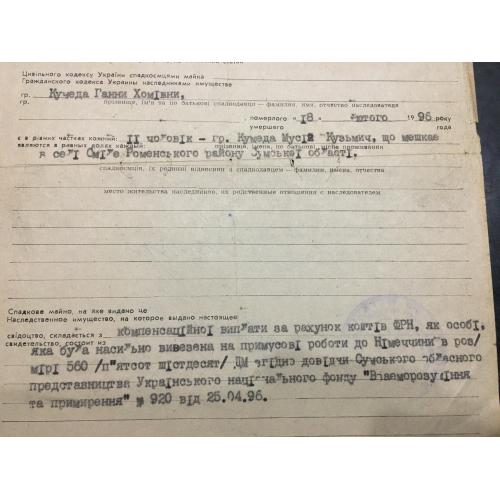 Цивільного кодексу України спадкоємцями майна
Гражданского кодекса Украины наследниками имущества
гр. Кумеда Ганни Хомівни,
гр. прізвище, ім'я та по батькові спадкодавця — фамилия, имя, отчество наследодателя
померлого "18" лютого 1996 року
умершего года
є в рівних частках кожний: її чоловік - гр. Кумеда Мусій Кузьмич, що мешкає
являются в равных долях каждый: прізвище, імена, по батькові, місце проживання
в селі Сміле Роменського району Сумської області.
спадкоємців, їх родинні відносини з спадкодавцем — фамилия, имена, отчества
место жительства наследников, их родственные отношения с наследователем
Спадкове майно, на яке видано це
Наследственное имущество, на которое выдано настоящее
свідоцтво, складається з компенсаційної виплати за рахунок коштів ФРН, як особі,
свидетельство, состоит из
яка була насильно вивезена на примусові роботи до Німеччини в роз/
мірі 560 /п'ятсот шістдесят/ ДМ згідно довідки Сумського обласного
представництва Українського національного фонду "Взаєморозуміння
та примирення" № 920 від 25.04.96.